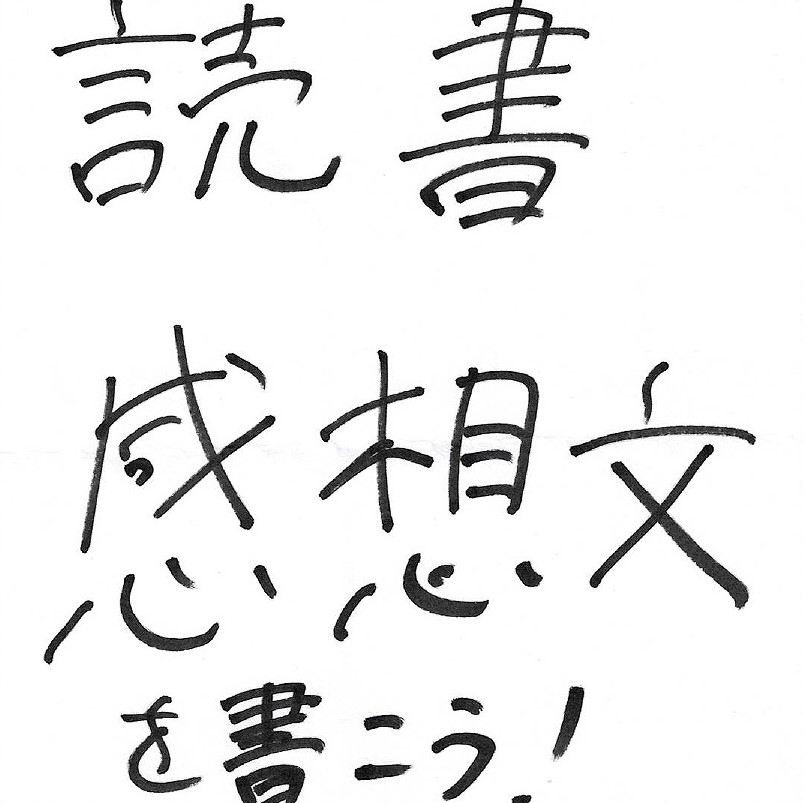 読書
感想文
を書こう!